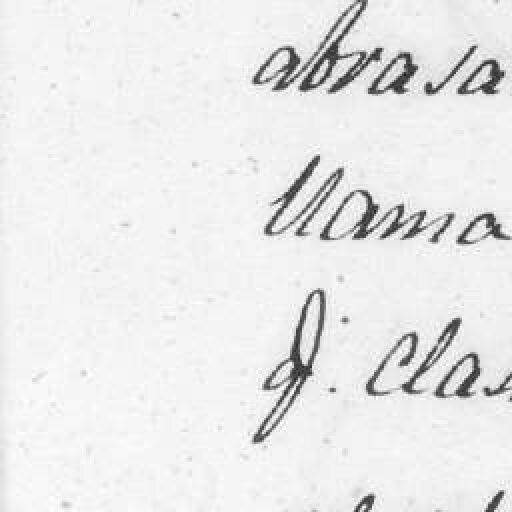 abrasa
llama
J. Clas